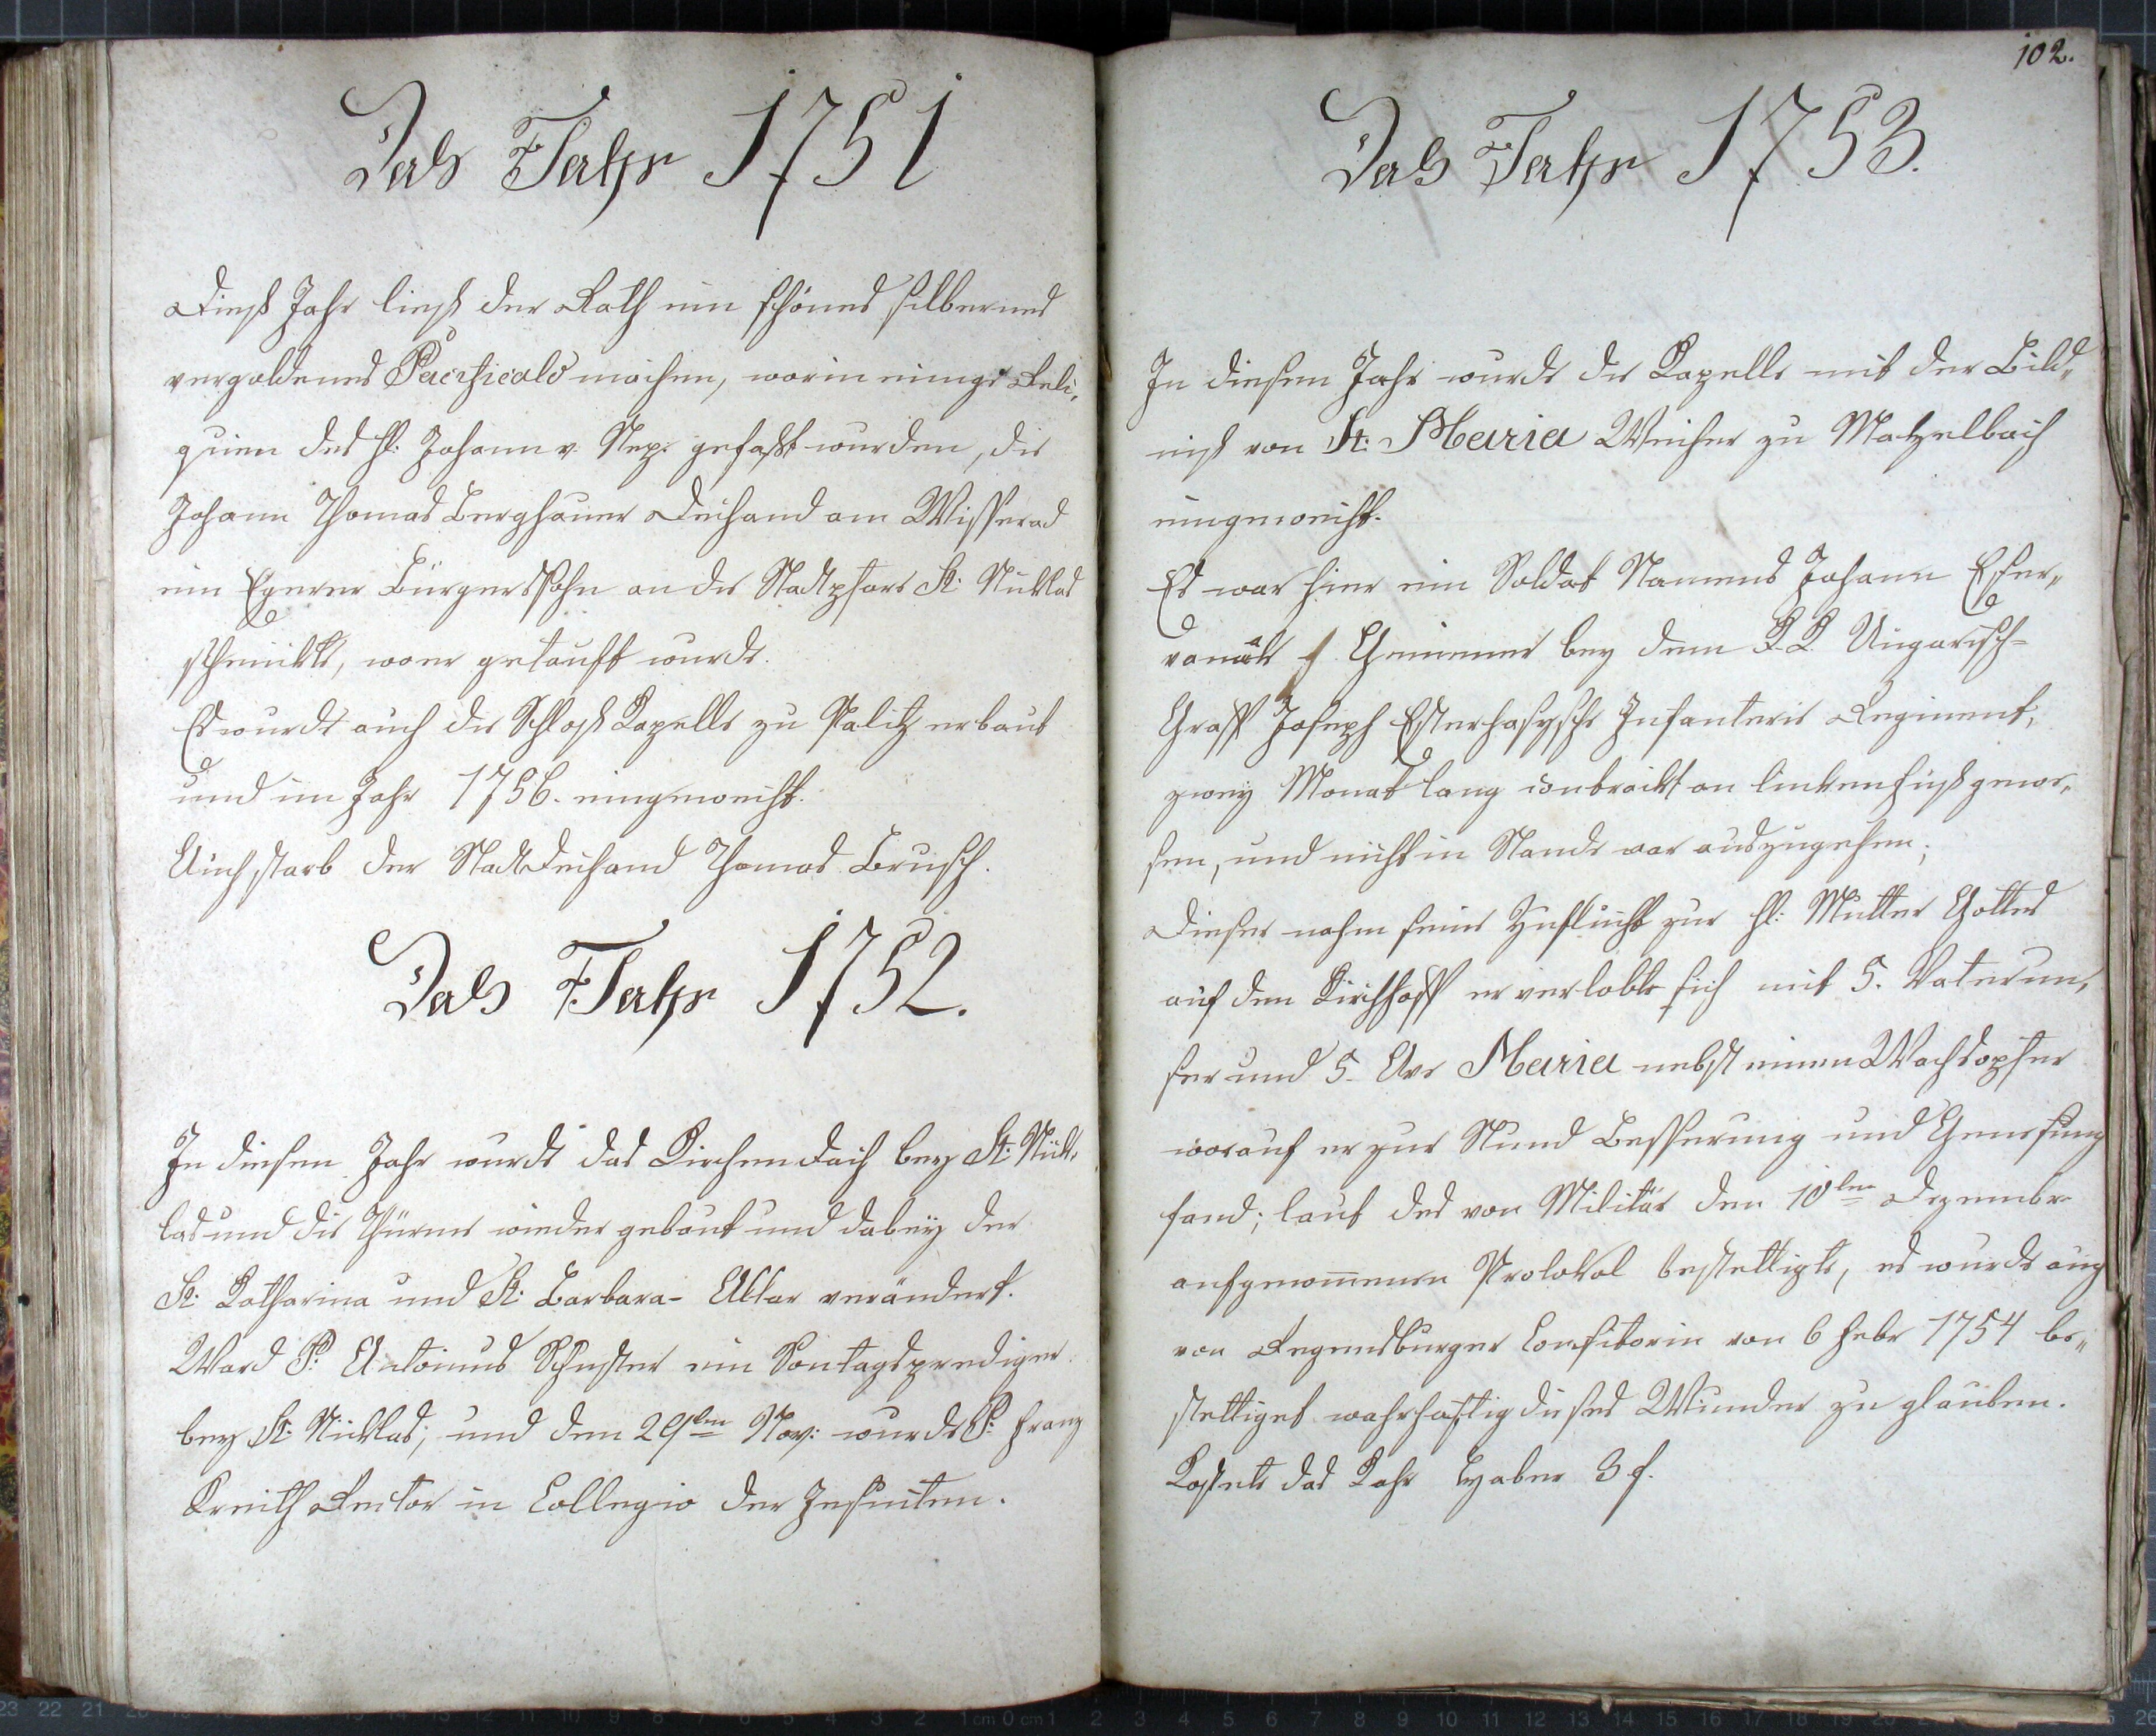 Das Jahr 1751
Dieß Jahr ließ der Rath ein schönes silbernes
vergoldenes Pacificale machen, worin einige Reli,
quien des hl: Johann v. Nep: gefaßt wurden, die
Johann Thomas Berghauer Dechand am Wisserad
ein Egerer Bürgerssohn an die Stadtpfarr St: Nicklas
schenckte, wo er getauft wurde.
Es wurde auch die Schloß Kapelle zu Palitz erbaut
und im Jahr 1756. eingeweiht.
Auch starb der Stadtdechand Thomas Brusch.
Das Jahr 1752.
In diesen Jahr wurde das Kirchendach bey St: Nick,
las und die Thürme wieder gebaut und dabeÿ der
St: Katharina und St: Barbara- Altar verändert.
Ward P: Antonius Schuster ein Sontagsprediger
bey St: Nicklas; und den 29ten Nov: wurde P: Franz
Kreith Rector in Collegio der Jesuiten.
102.
Das Jahr 1753.
In diesen Jahr wurde die Kapelle mit der Bild,,
niß von St: Maria Weiher zu Matzelbach
eingeweiht.
Es war hier ein Soldat Namens Johann
Gemeiner bey dem K.K. Ungarisch=
Graff Joseph Esterhasysche Infanterie Regiment,
zwey Monat lang contrackt an linken Fuß gewe,,
sen, und nicht in Stande war auszugehen;
Dieser nahm seine Zuflucht zur hl: Mutter Gottes
auf den Kirchhoff er verlobte sich mit 5. Vaterun,
ser und 5. Ave Maria nebst einen Wachsopfer
worauf er zur Stund Besserung und Genesung
fand; laut des von Militär den 10ten Dezember
aufgenommenen Protokol bestettigte, es wurde auch
von Regensburger Consistorin von 6 Febr 1754 be,,
stettiget wahrhaftig dieses Wunder zu glauben.
Kostete das Kahr Haber 3 f.